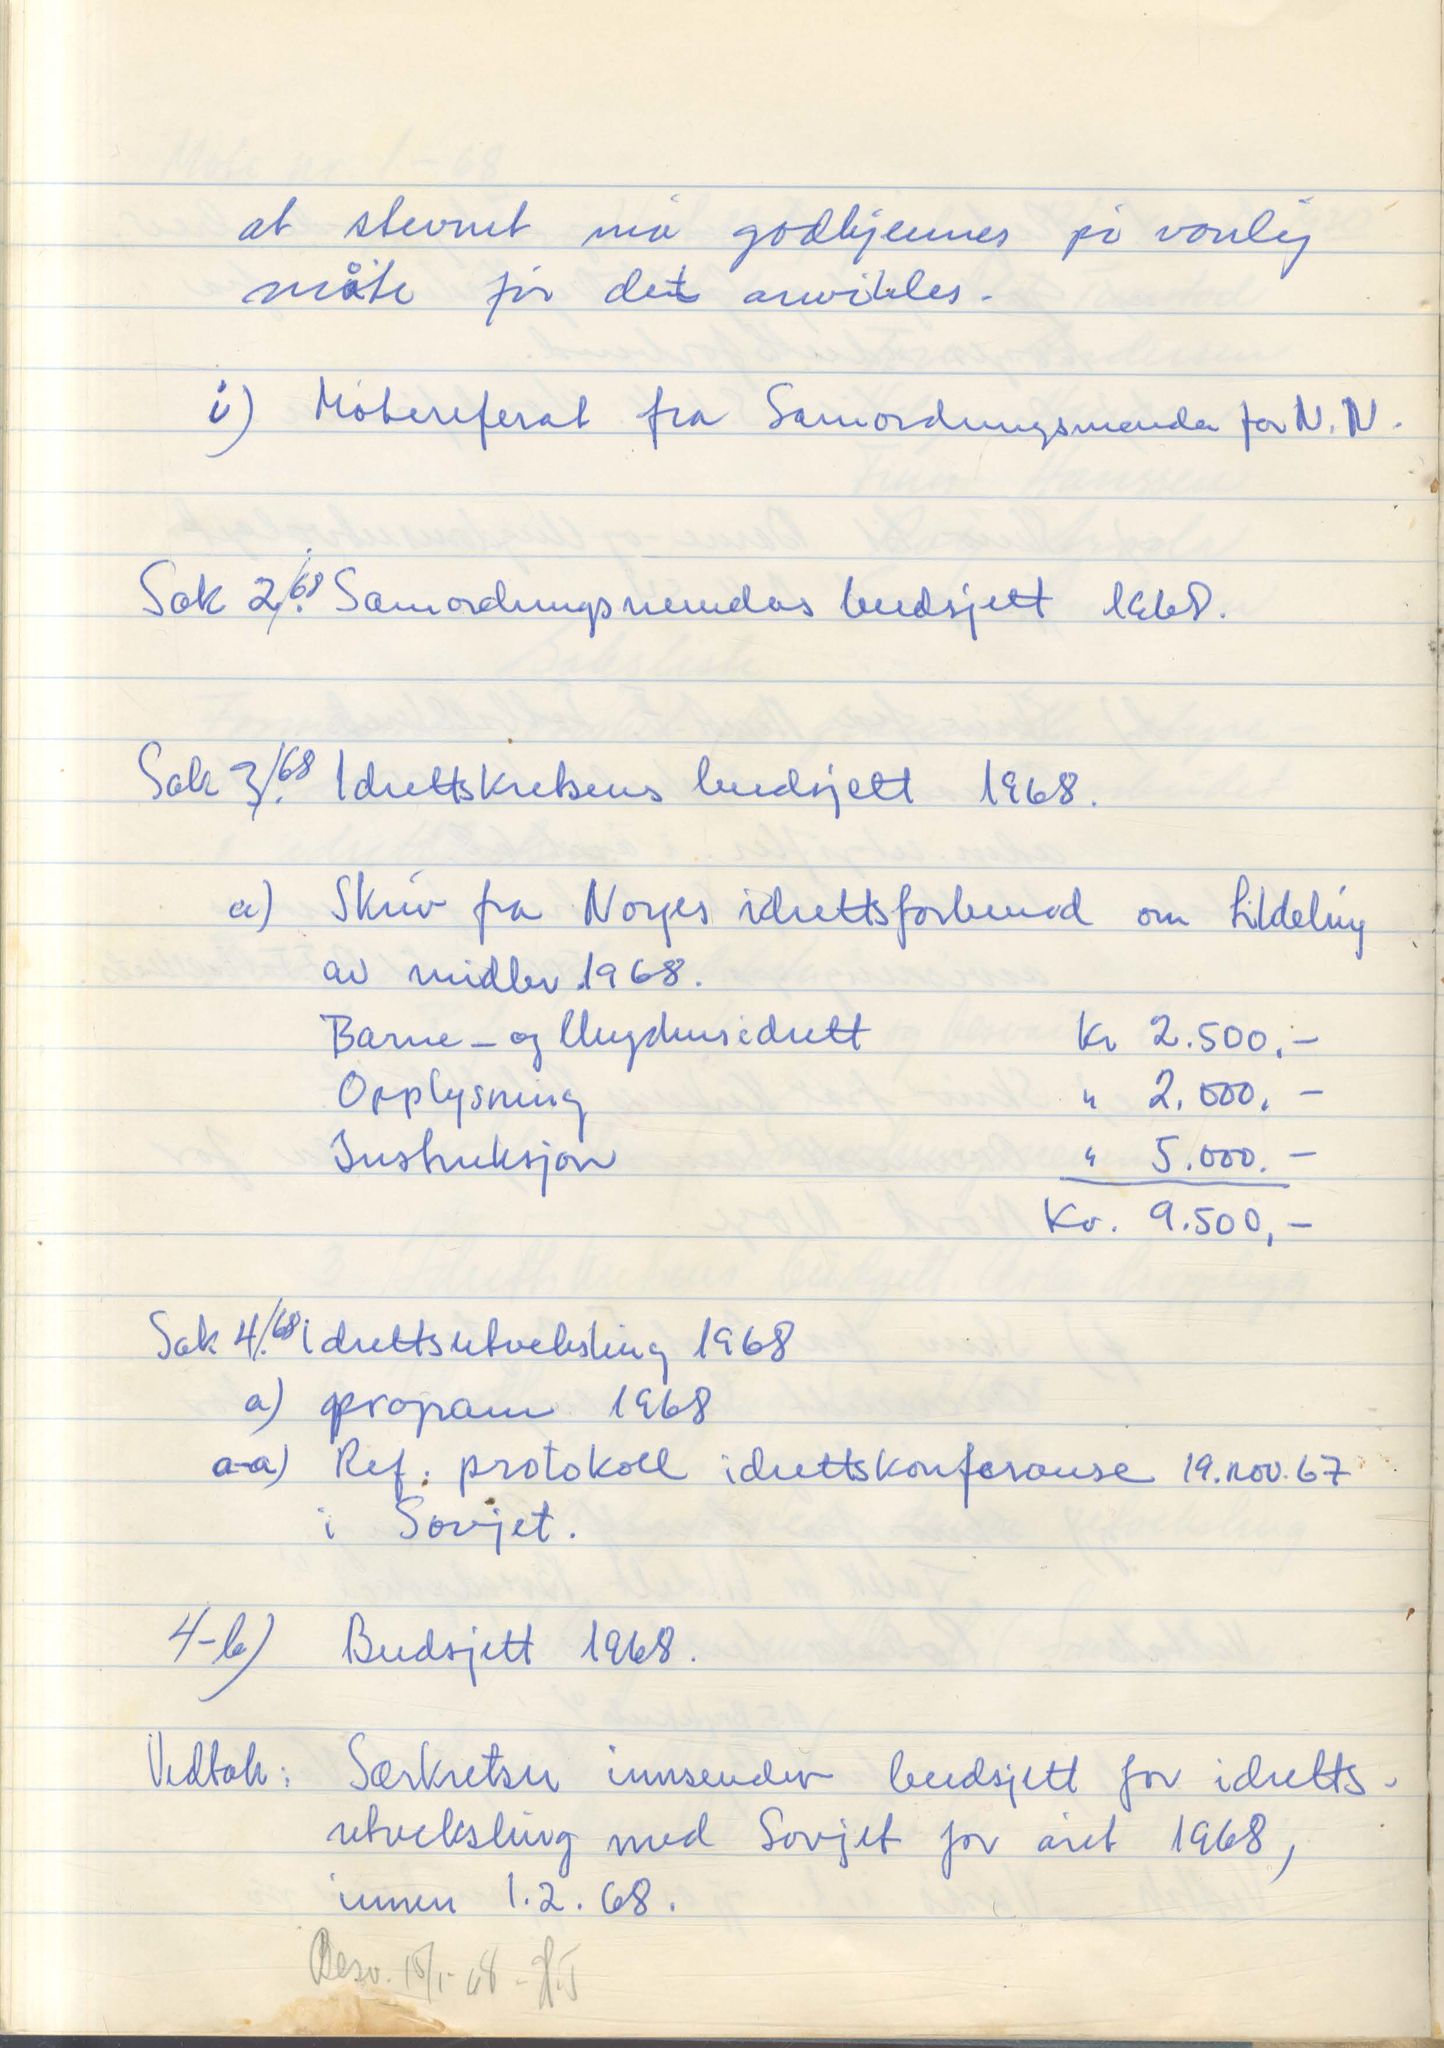 at stevnet må godkjennes på vanlig
måte før det avvikles.
i) Møtereferat fra Samordningsnemda for N.N.
Sak 2/68. Samordningsnemdas budsjett 1968.
Sak 3/68. Idrettskretsens budsjett 1968.
a) Skriv fra Norges idrettsforbund om tildeling
av midler 1968.
Barne- og Ungdomsidrett Kr 2.500,-
Opplysning " 2.000,-
Instruksjon " 5.000.-
Kr. 9.500,-
Sak 4/68. idrettsutveksling 1968
a) program 1968
a-a) Ref. protokoll idrettskonferanse 19.nov.67
i Sovjet.
4-b) Budsjett 1968.
Vedtak: Særkretser innsender budsjett for idretts-
utveksling med Sovjet for året 1968,
innen 1.2.68.
Besv. 18/1-68 -